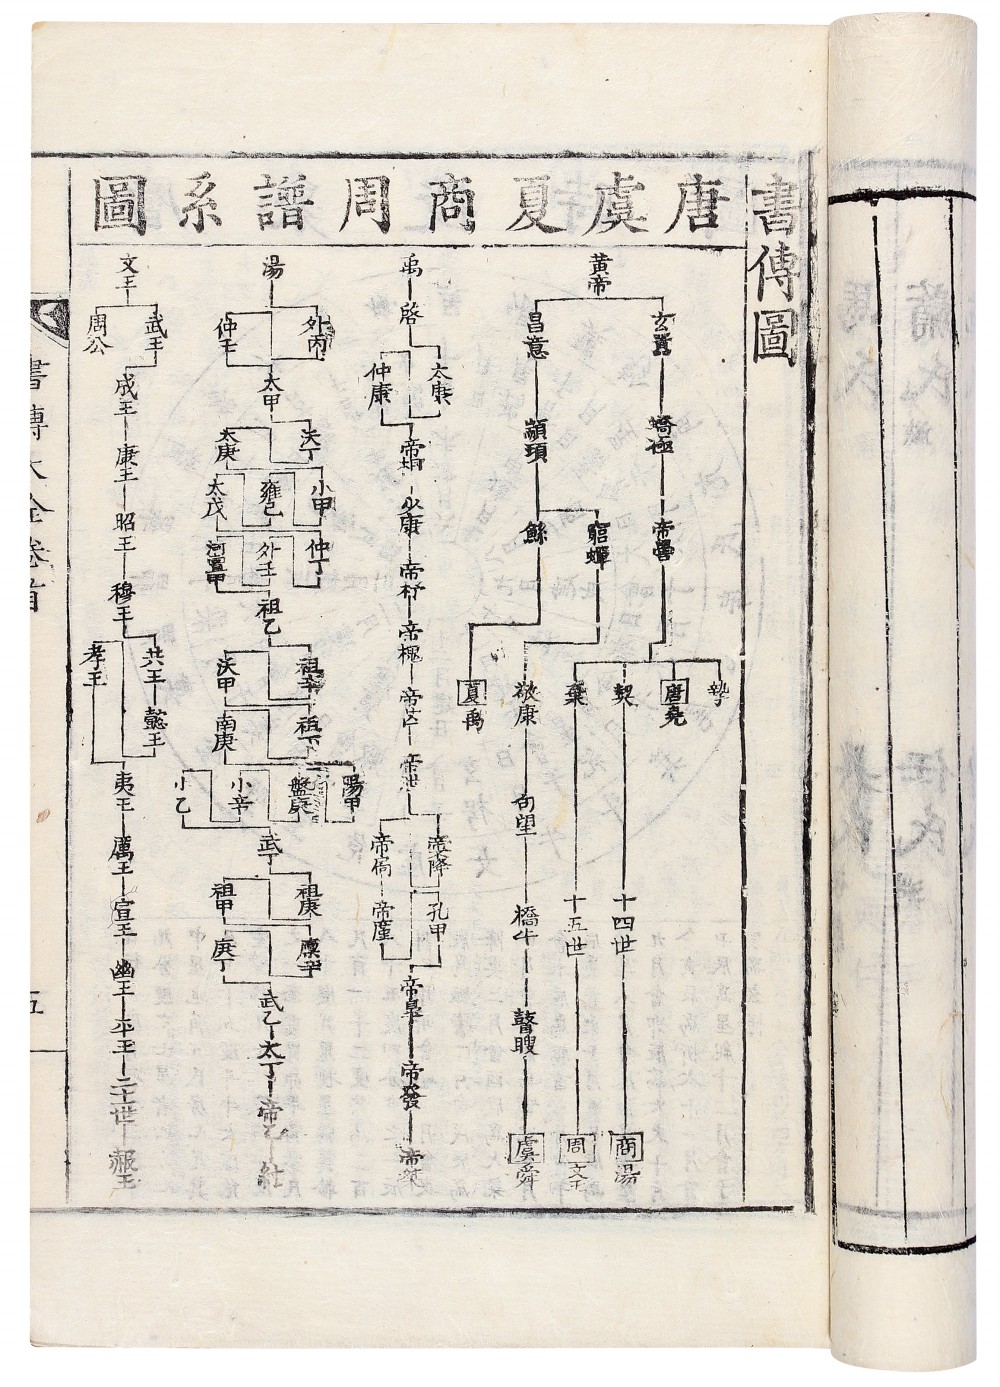 書傳圖
唐虞夏商周譜系圖
黃帝
玄囂
蟜極
帝嚳
摯
唐堯
契
十四世
商湯
棄
十五世
周文王
昌意
顓頊
窮蟬
敬康
句望
橋牛
瞽瞍
虞舜
鯀
夏禹
禹
啓
太康
仲康
帝相
少康
帝杼
帝槐
帝芒
帝泄
帝降
孔甲
帝扃
帝廑
帝皐
帝發
帝癸
湯
外丙
仲壬
太甲
沃丁
太庚
小甲
雍己
太戊
仲丁
外壬
河亶甲
祖乙
祖辛
沃甲
祖丁
南庚
陽甲
盤庚
小辛
小乙
武丁
祖庚
祖甲
廩辛
庚丁
武乙
太丁
帝乙
紂
文王
武王
周公
成王
康王
昭王
穆王
共王
懿王
孝王
夷王
厲王
宣王
幽王
平王
二十世
赧王
書傳大全卷首
五